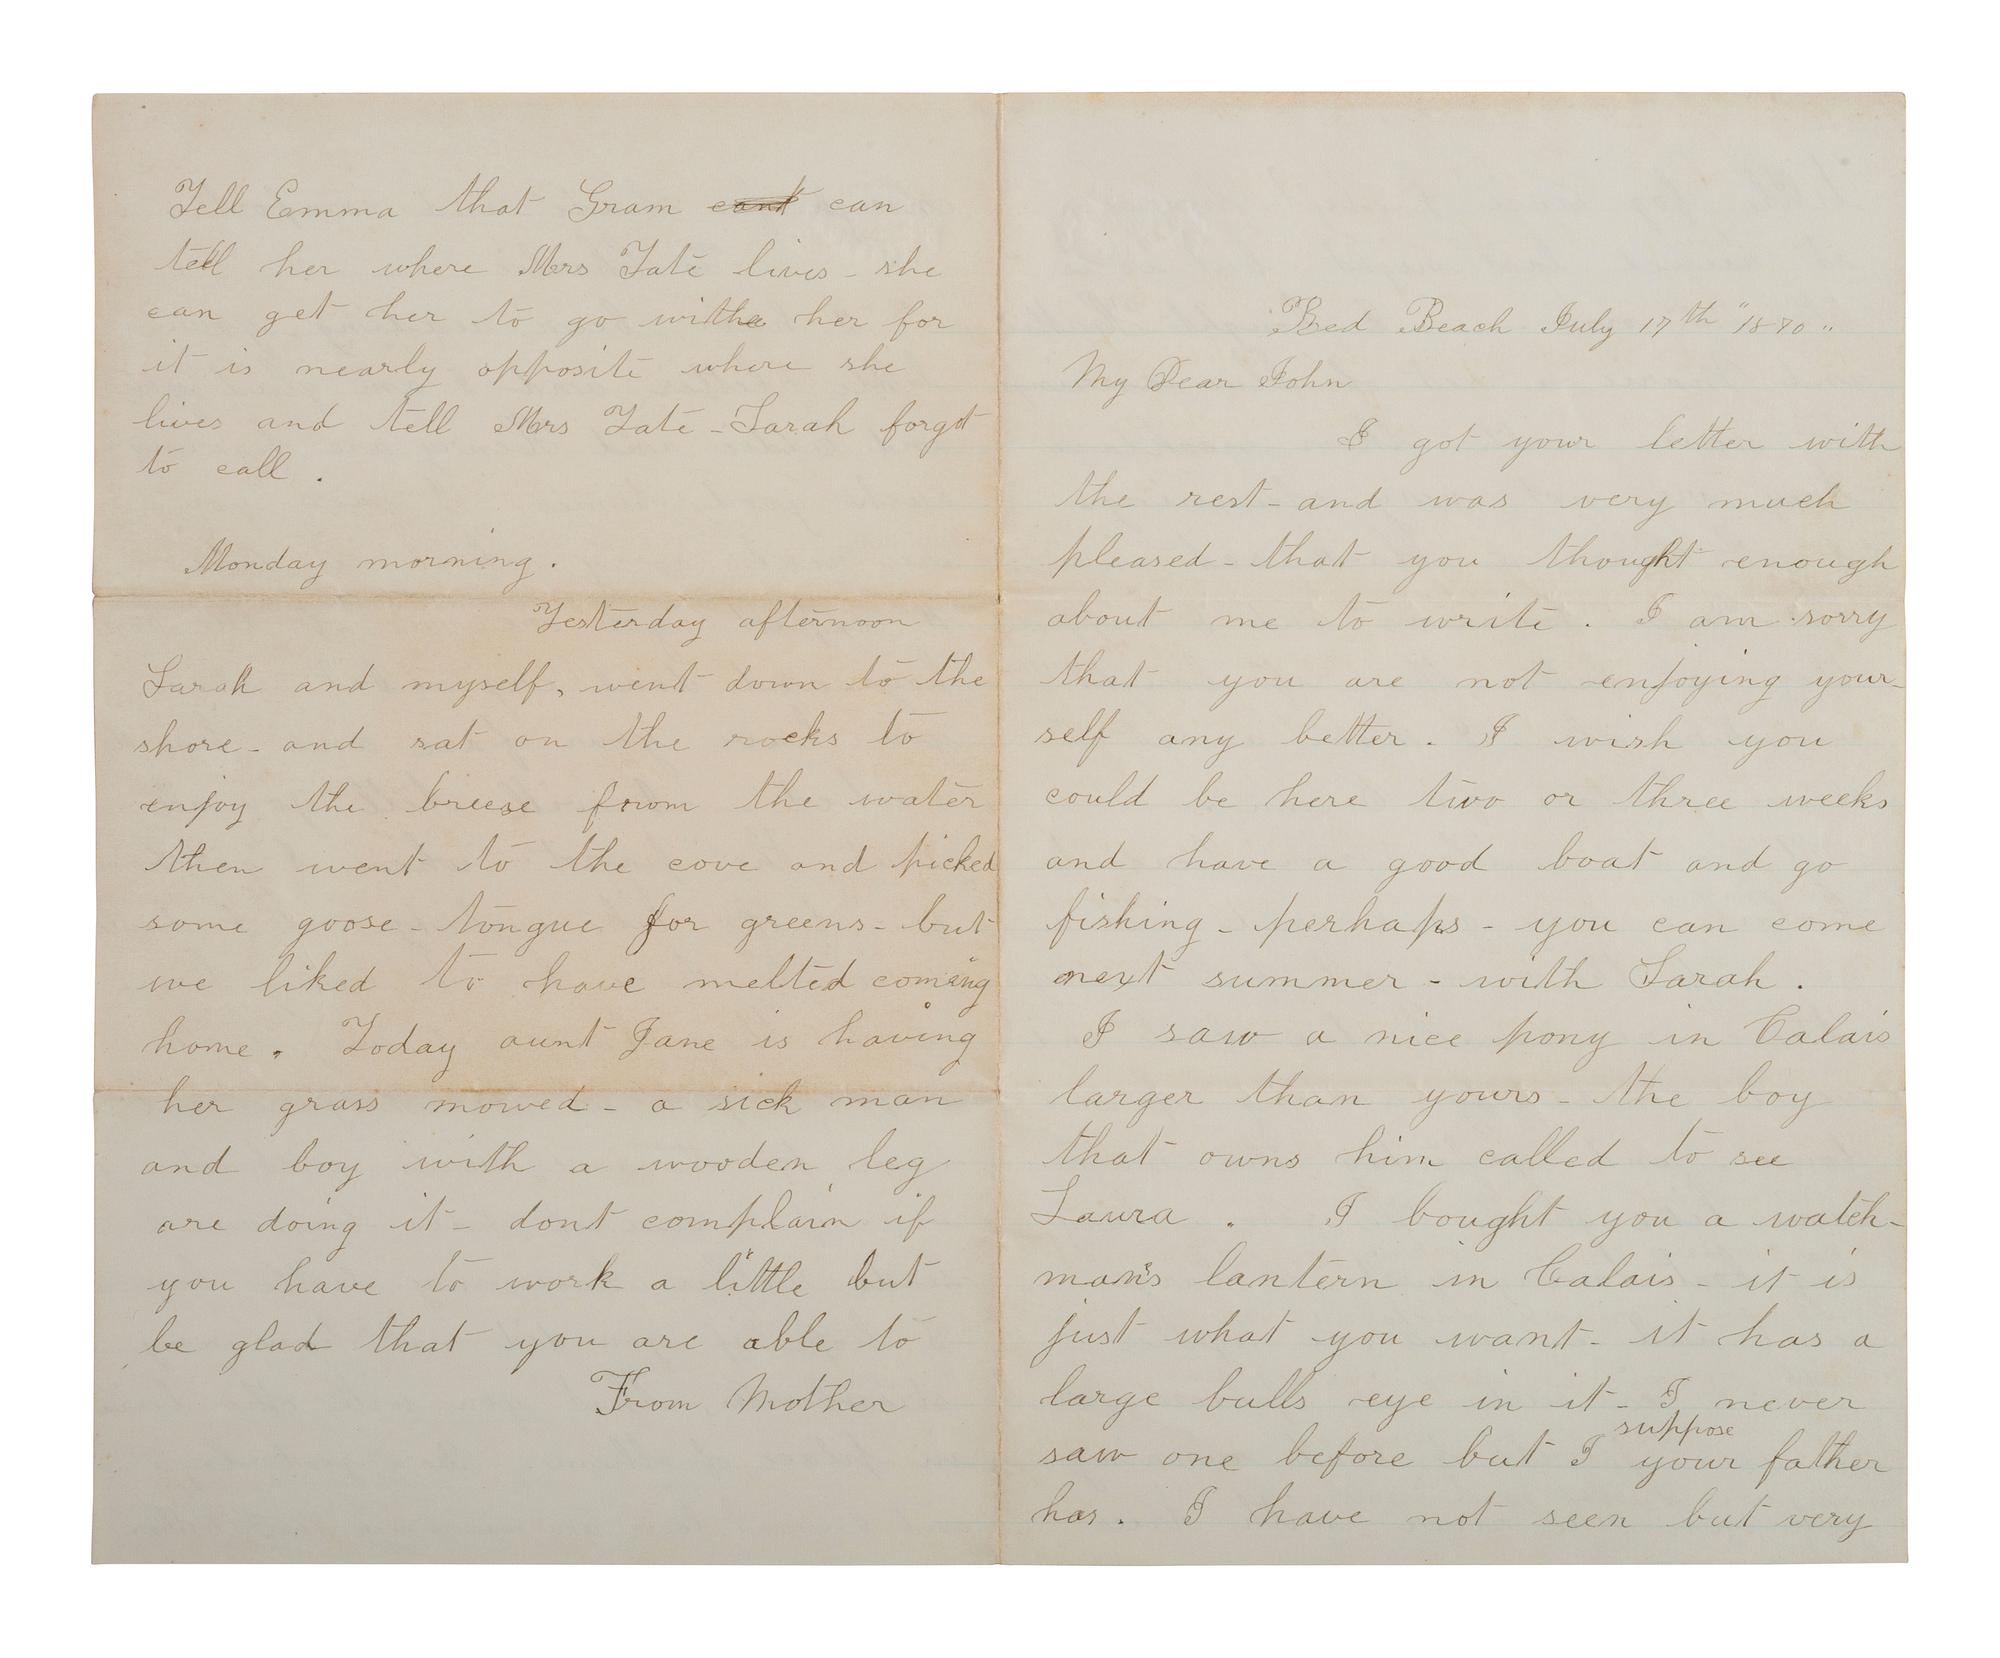 Red Beach July 17th "1870"
My Dear John
I got your letter with
the rest - and was very much
pleased - that you thought enough
about me to write . I am sorry
that you are not enjoying your-
self any better . I wish you
could be here two or three weeks
and have a good boat and go
fishing - perhaps - you can come
next summer - with Sarah .
I saw a nice pony in Calais
larger than yours - the boy
that owns him called to see
Laura . I bought you a watch-
man's lantern in Calais - it is
just what you want - it has a
large bulls eye in it - I never
suppose
saw one before but I your father
has . I have not seen but very
Tell Emma that Gram cant can
tell her where Mrs Tate lives - she
can get her to go withe her for
it is nearly opposite where she
lives and tell Mrs Tate - Sarah forgot
to call .
Monday morning .
Yesterday afternoon
Sarah and myself, went down to the
shore - and sat on the rocks to
enjoy the breese from the water
then went to the cove and picked
some goose - tongue for greens - but
we liked to have melted coming
home . Today aunt Jane is having
her grass mowed - a sick man
and boy with a wooden leg
are doing it - dont complain if
you have to work a little but
be glad that you are able to
From Mother